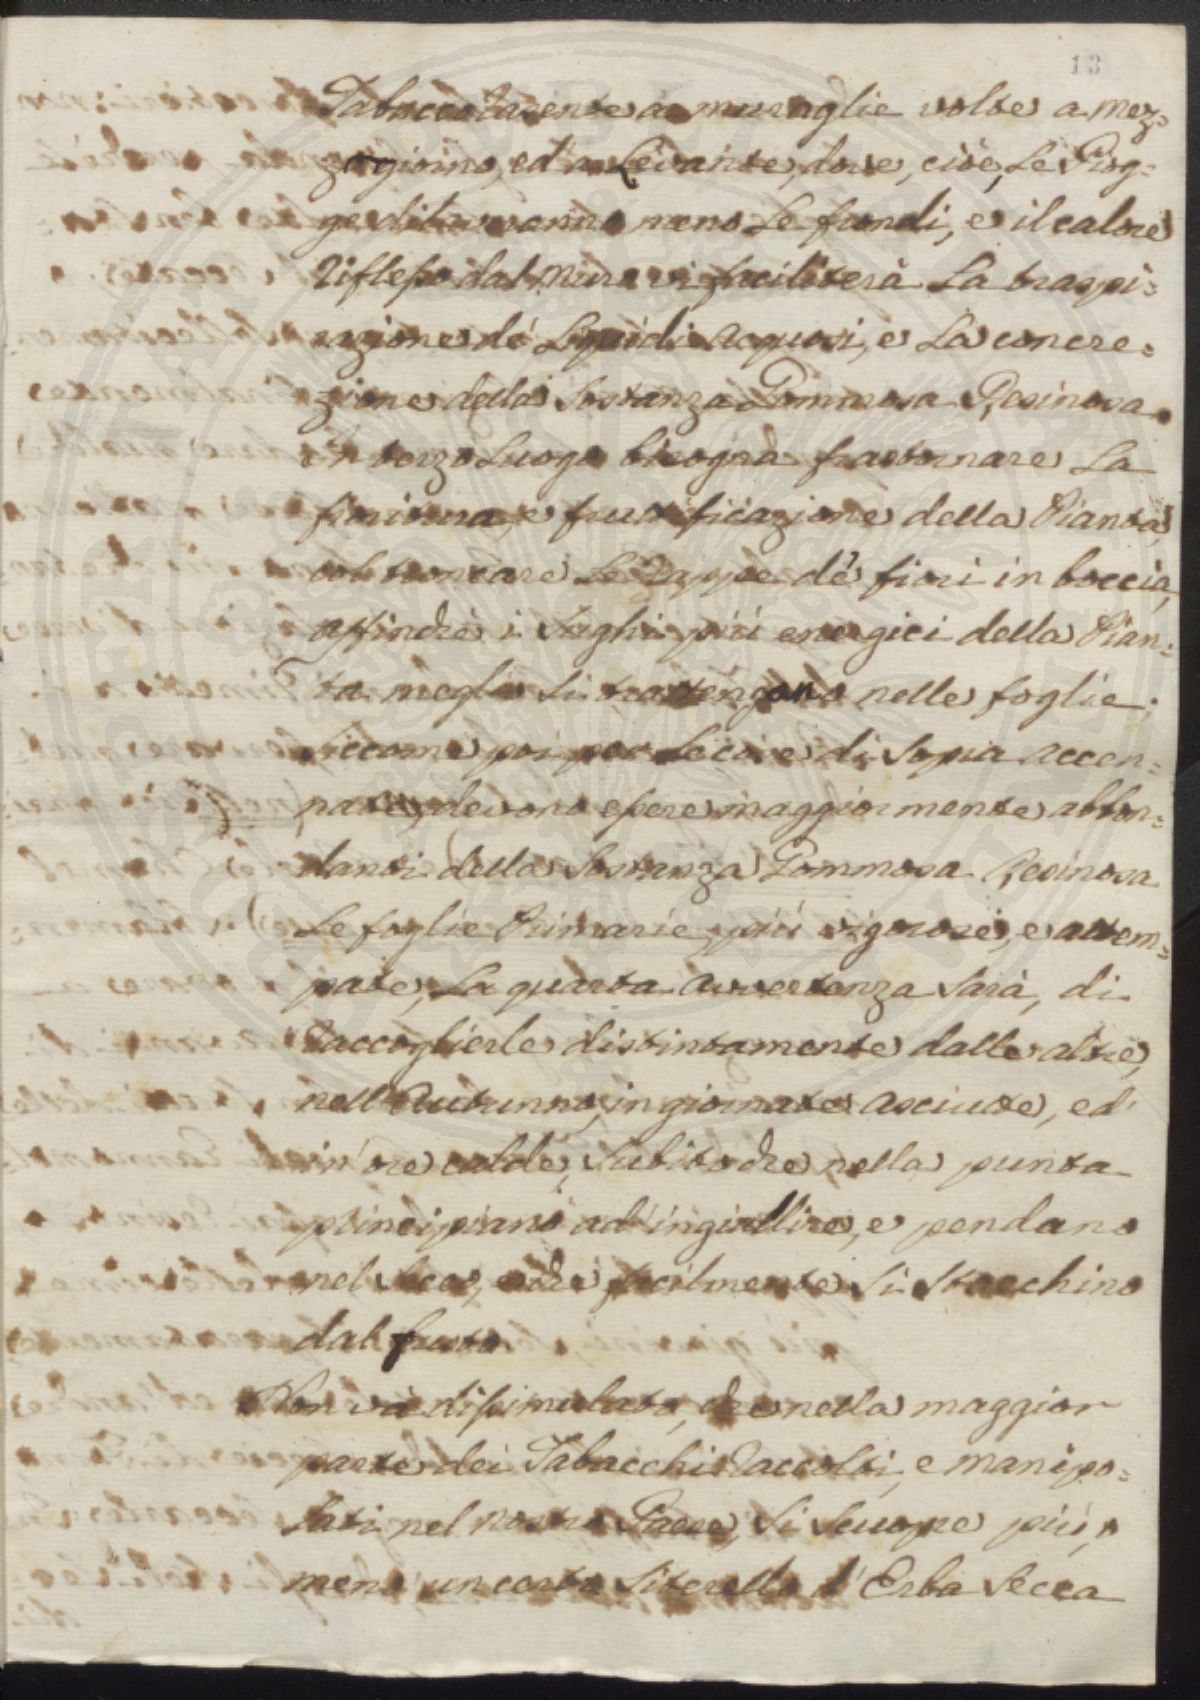 13
Tabacco tacente a muraglie volte a mez=
zogiorno, ed a Levante, dove, cioè, le Piog=
ge diln meno le frondi, e il calore
riflesso dal muro vi faciliterà la traspi=
razione de' liquidi acquosi, e la concre=
zione della sostanza Gommosa Resinosa.
In terzo luogo bisognà frastornare la
fioritura, e fruttificazione della Pianta,
col troncare le Rappe de' fiori in boccia,
affinchè i sughi più energici della Pian=
ta meglio si trattengano nelle foglie;
siccome poi per le cose di sopra accen=
nate, devono essere maggiormente abbon=
danti della sostanza Gommosa Resinosa
le foglie Primarie, più vigorose, e attem=
pate, la quarta avvertenza sarà, di
raccoglierle distintamente dalle altre,
nell'Autunno, in giornate asciutte, ed
in ore calde, subitoche nella punta
principiano ad ingiallire, e pendano
nel secco, e che facilmente si stacchino
dal fusto.
Non và dissimulato, che nella maggior
parte dei Tabacchi raccolti, e manipo=
lati nel nostro Paese, si scuopre più, o
meno un certo siterello d'Erba secca